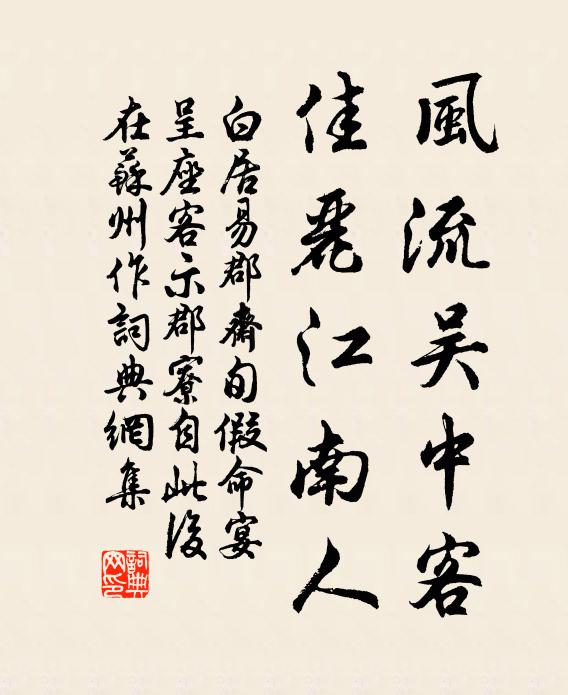 風流吴中客
佳麗江南人
白居易郡齋旬假命宴
呈座客示郡寮自此後
在蘇州作詞典網集
詞典网印